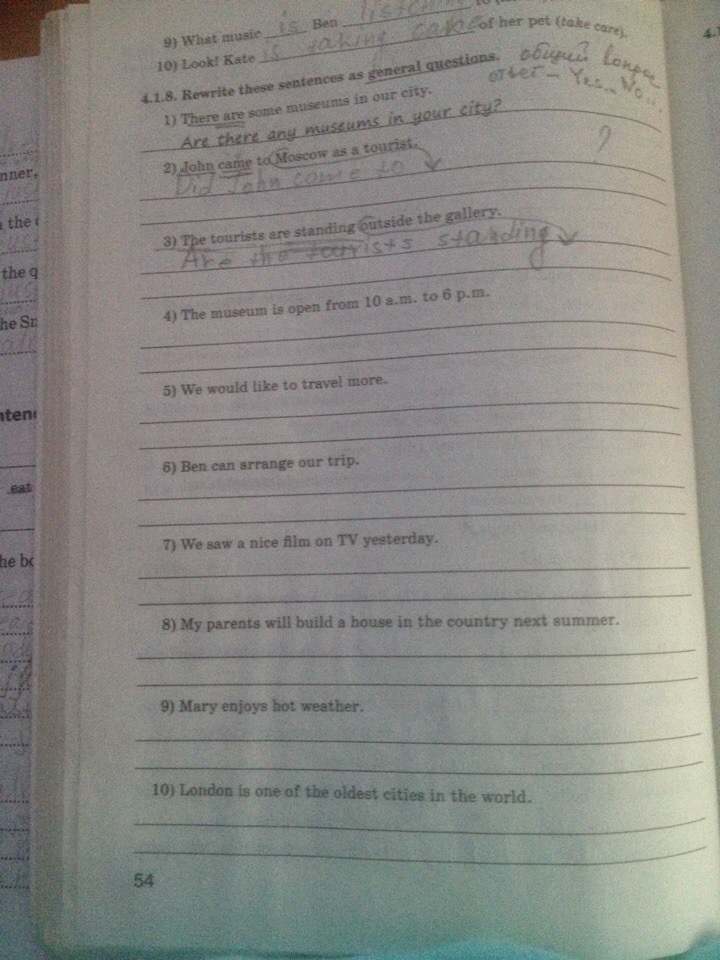 9) What music is Ben listening
10) Look! Kate is taking care of her pet (take care).
4.1.8. Rewrite these sentences as general questions.
общий вопрос
ответ - Yes.. No...
1) There are some museums in our city.
Are there any museums in your city?
2) John came to Moscow as a tourist.
?
Did John come to
3) The tourists are standing outside the gallery.
Are the tourists standing
4) The museum is open from 10 a.m. to 6 p.m.
5) We would like to travel more.
6) Ben can arrange our trip.
7) We saw a nice film on TV yesterday.
8) My parents will build a house in the country next summer.
9) Mary enjoys hot weather.
10) London is one of the oldest cities in the world.
54
nner.
the
the q
he Sn
eat
4.1